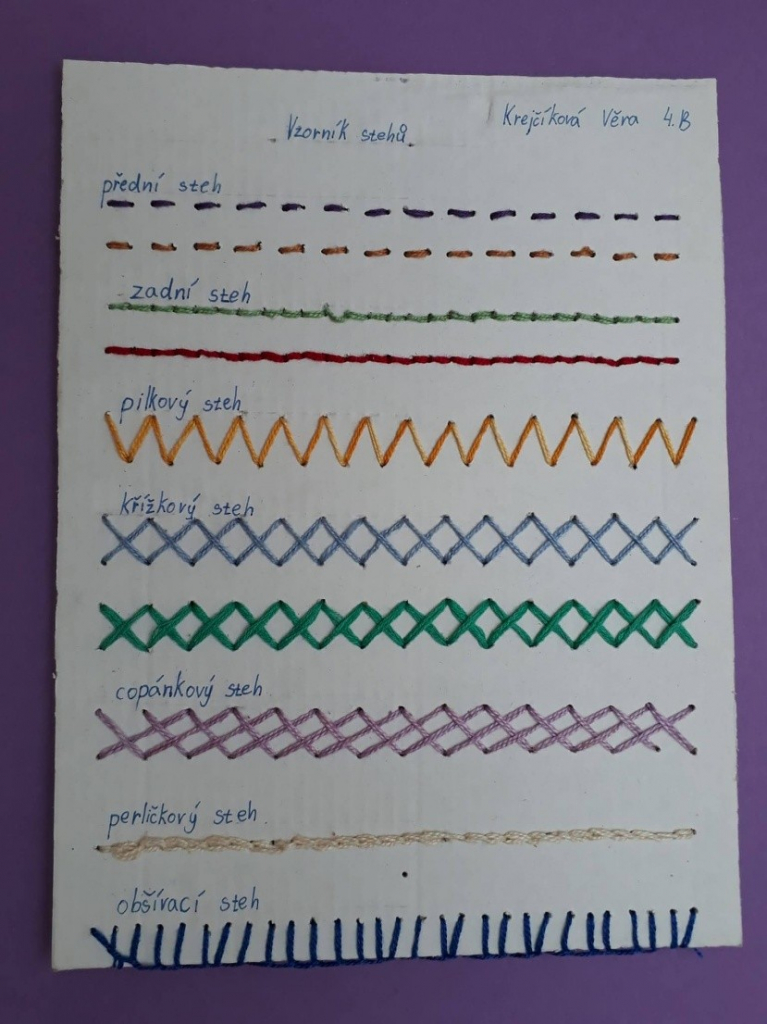 Vzorník stehů
Krejčíková Věra 4.B
přední steh
zadní steh
pilkový steh
křížkový steh
copánkový steh
perličkový steh
obšívací steh